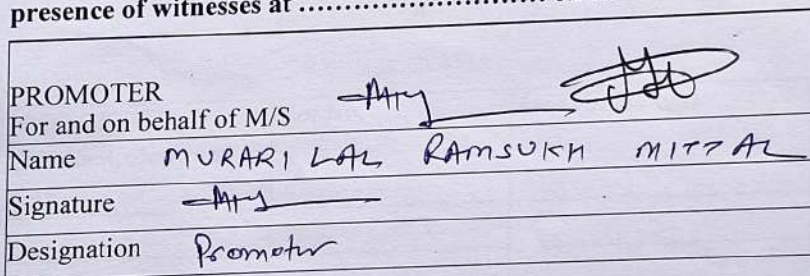 presence of witnesses at ...........................
PROMOTER
For and on behalf of M/S
Name MURARI LAL RAMSUKH MITTAL
Signature
Designation Promoter